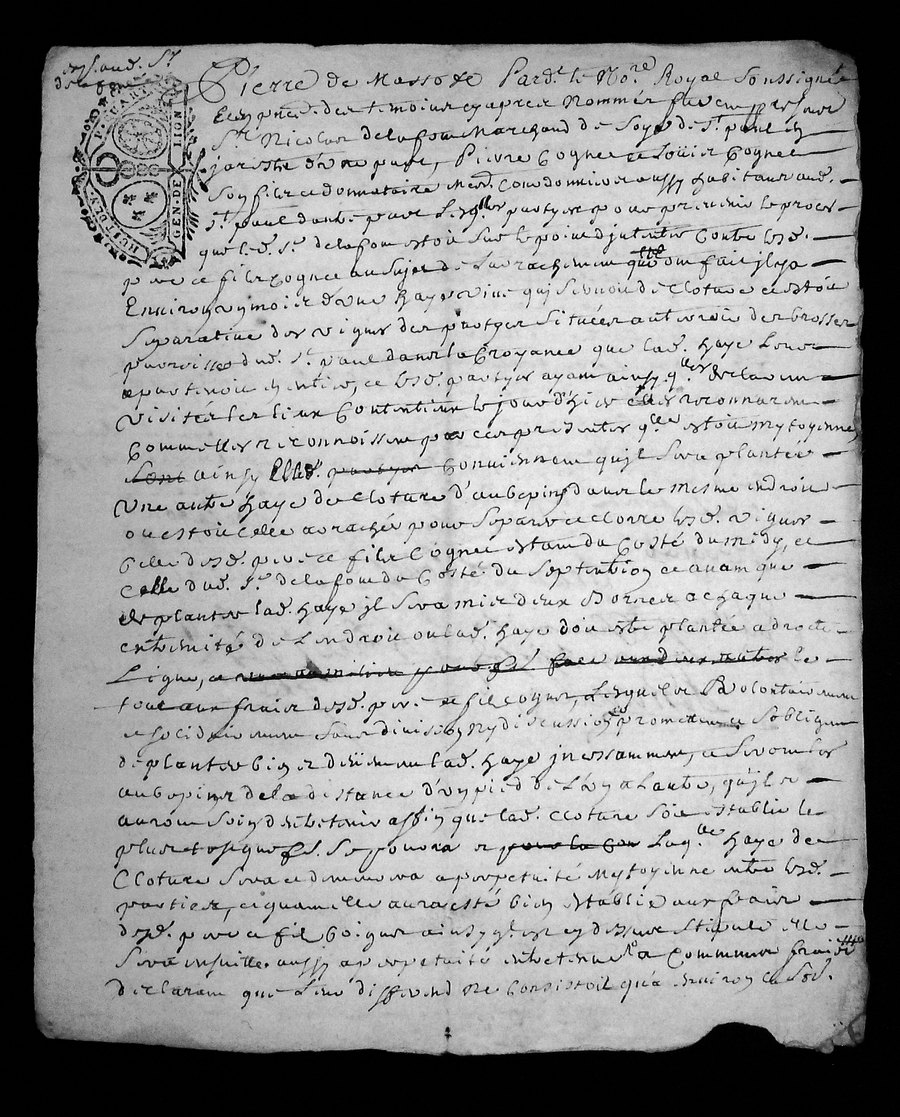 HUIT DEN. P. QUART
GEN. DE LION
Pierre de Massoxe Pard. le No.re Royal Soussigné
En pnce. des temoins cy apres Nommés furent pnts
Sr. Nicolas delafon Marchand de Soye de St. paul en
jaristhe d'une part, Pierre Cognet et Cognet
Son fils et donnataire aussy habitans aud.
St. paul dautre part Lesqlles. partyes pour prevenir le proces
que led. Sr. delafon estoit sur le point d'intenter Contre lesd.
pere et fils Cognet au sujet de L'arrachement qu'ont fait il y a
Environ un mois d'une haye vive qui servoit de Cloture et estoit
Separative des vignes des partyes Situées au terroir des brosses
parroisse dud. St. Paul dans la Croyance que lad. haye Leur
apartenoit en entier, et lesd. partyes ayant
visiter les lieux Contentieux le jour d'hier elles reconnurent
Comme elles reconnoissent par ces presentes qlle. estoit mytoyenne
ainsy lesd. partyes Conviennent qu'il Sera plantée
Une autre haye de Cloture d'aubepins dans le mesme endroit
ou estoit Celle arachée pour Separer et Clorre lesd. vignes
Celle desd. pere et fils Cognet estant du Costé du midy, et
Celle dud. Sr. delafon du Costé du Septention et avant que
de planter lad. haye il Sera mis deux Bornes a chaque
extremité de L'endroit ou lad. haye doit estre plantée a droite
Ligne, et le
tout aux fraix desd. pere et fils Cognet, Lesquels Volontairement
et solidairement Sans division Ny discussion promettent et S'obligent
de planter bien et deüement lad. haye incessamment, et Seront les
aubepins de la distance d'un pied de L'un a Lautre, qu'ils
auront Soin d'entretenir affin que lad. Cloture soit establie le
plustost que fe. Se pourra et pour la Con Laqlle. haye de
Cloture Sera et demeurera a perpetuité Mytoyenne entre lesd.
parties, et quant elle aura esté bien establie aux fraix
desd. pere et fils Cognet ainsy qlest cy dessus Stipulé elle
Sera ensuitte aussy a perpetuité entretenue a Commun fraix
declarant que Leur differend Ne Consistoit qu'a environ